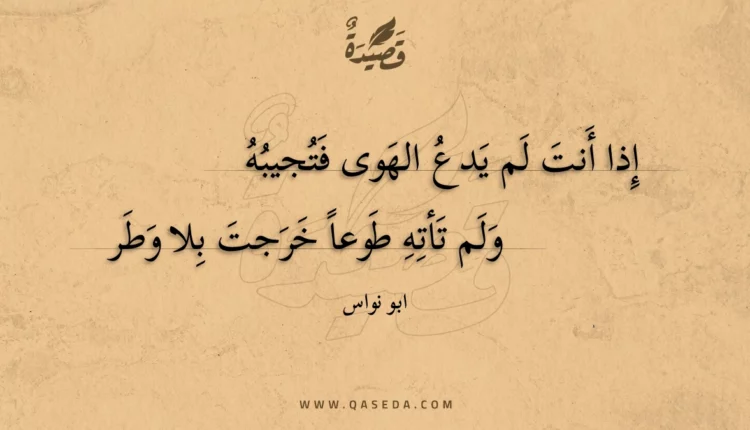 قَصِيْدَةٌ
إِذا أَنتَ لَم يَدعُ الهَوى فَتُجيبُهُ
وَلَم تَأتِهِ طَوعاً خَرَجتَ بِلا وَطَر
ابو نواس
WWW.QASEDA.COM